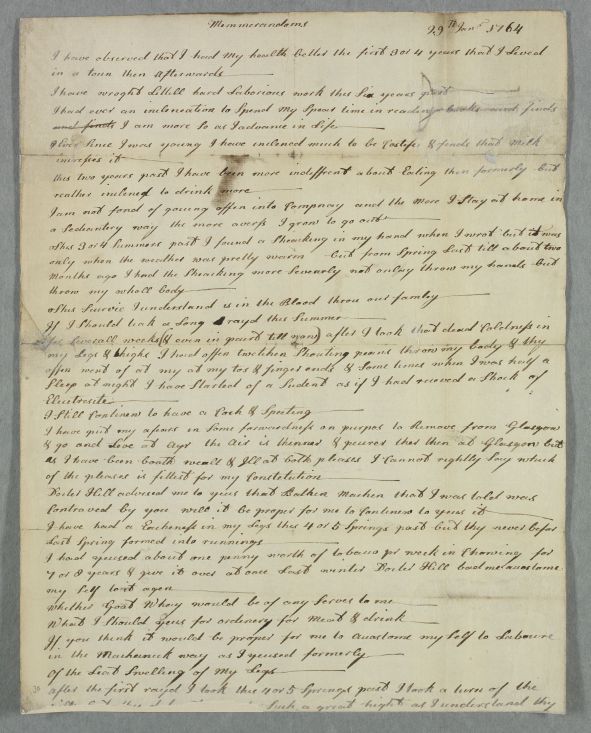 Memmerandoms 29th Jan 1764
I have observed that I had My health better the first 3 or 4 years that I Lived
in a toun then afterwards
I have wroght Littell hard Laborious work this Six years past
I had ever an inclenecation to Spend My Spaer time in reading books and finds
I am more So as I advance in Life
Ever Since I was young I have inclened much to be Costife & finds that Milk
incresses it
this two years past I have been more indiffrent about Eating then formerly but
reather inclened to drink more
I am not fond of goaung offen into Company and the More I Stay at home in
a Sedentery way the more averss I grow to go out
this 3 or 4 Summers past I found a Sheacking in my hand when I wrot but it was
only when the weather was pretty warm but from Spring Last till about two
Months ago I had the Sheacking more Severly not onlay throw my hands but
throw my wholl body
this Scurvie I understand is in the Blood throu our famly
If I Should teak a Long rayd this Summer
for Severall weeks (& even in pairt till now) after I took that dead Coldness in
my Legs & thighs I had offen twichen Shouting peains throw my body & thy
offen went of at my at my tos & finger ends & Some times when I was half a
Sleep at night I have Started of a Sudent as if I had receved a Shock of
Electresite
I Still Continew to have a Coch & Speting
I have put my afears in Some forwardness on purpos to Remove from Glasgow
& go and Live at Ayr the Air is thenner & peurer ther then at Glasgow but
as I have been boath weall & Ill at both pleases I Cannot rightly Say which
of the pleases is fittest for my Constitution
Docter Hill advised me to yeus that Bathen Machen that I was told was
Contraved by you will it be proper for me to Continew to yeus it
I have had a Eacheness in my Legs this 4 or 5 Springs past but thy never befor
Last Spring formed into runnings
I had yeused about one penny worth of tobacco pr week in Chawing for
7 or 8 years & give it over at once Last winter Docter Hill bad me acustome
my Self to it agen
Whether Goat Whay would be of any Serves to me
What I Should yeus for ordenery for Meat & drink
If you think it would be proper for me to Acustome my Self to Laboure
in the Machanick way as I yeused formerly
Of the Leat Swelling of My Legs
after the first rayd I took the 4 or 5 Springs past I took a turn of the
Such a great hight as I understand thy